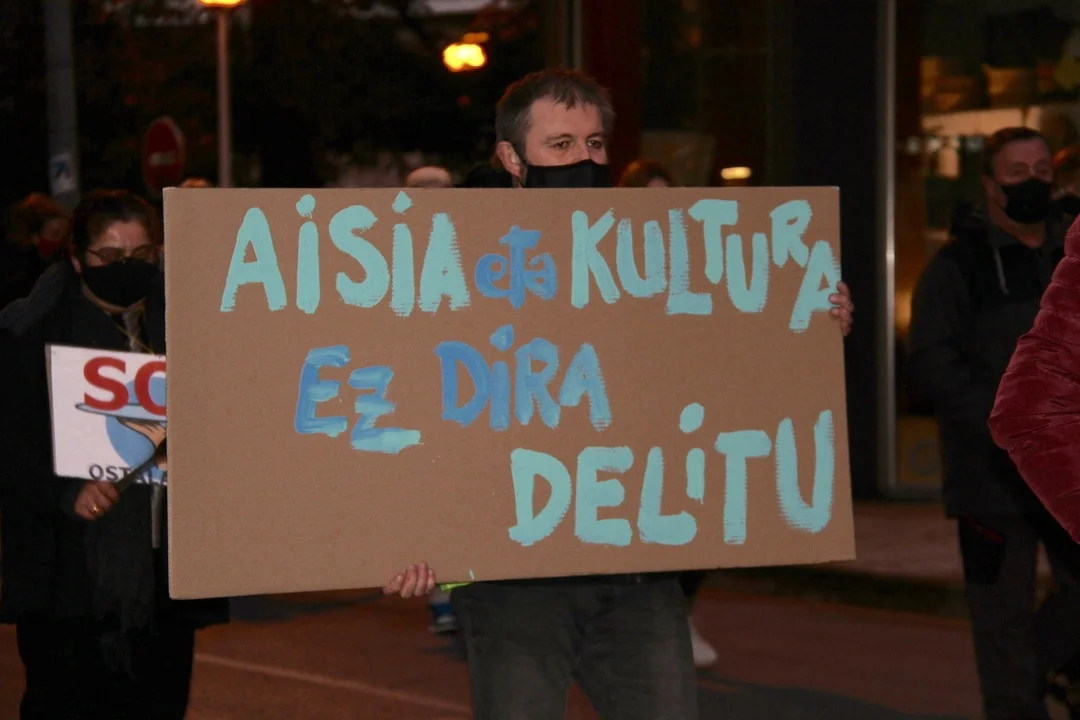 AiSiA eta KULTURA
EZ DiRA
DELiTU
SO
OST